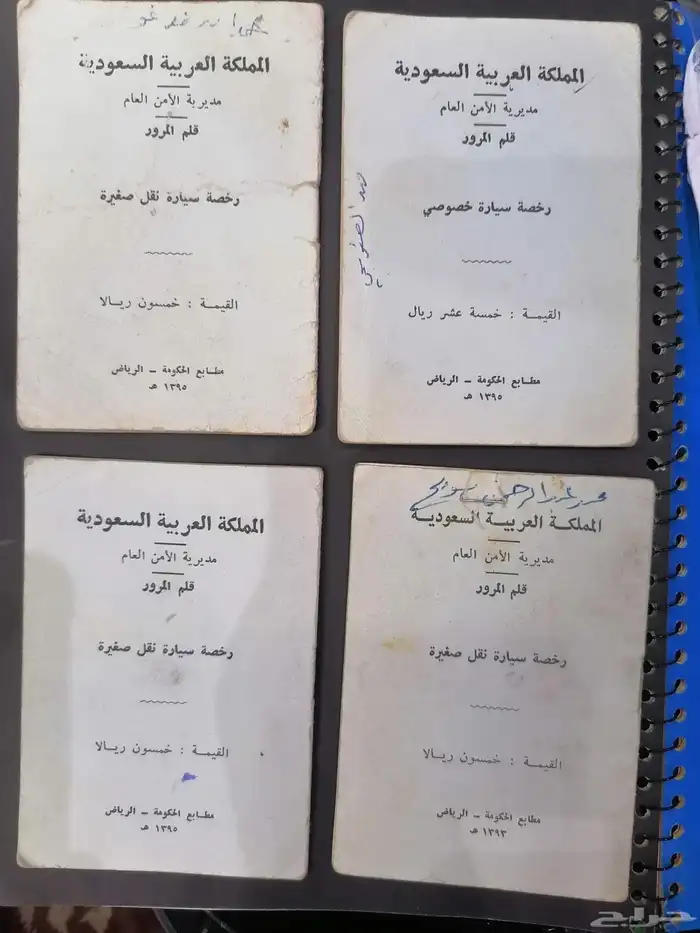 المملكة العربية السعودية
مديرية الأمن العام
قلم المرور
رخصة سيارة نقل صغيرة
القيمة : خمسون ريالا
مطابع الحكومة – الرياض
١٣٩٥ هـ
المملكة العربية السعودية
مديرية الأمن العام
قلم المرور
رخصة سيارة خصوصي
القيمة : خمسة عشر ريال
مطابع الحكومة – الرياض
١٣٩٥ هـ
المملكة العربية السعودية
مديرية الأمن العام
قلم المرور
رخصة سيارة نقل صغيرة
القيمة : خمسون ريالا
مطابع الحكومة – الرياض
١٣٩٥ هـ
عبدالرحمن
المملكة العربية السعودية
مديرية الأمن العام
قلم المرور
رخصة سيارة نقل صغيرة
القيمة : خمسون ريالا
مطابع الحكومة – الرياض
١٣٩٣ هـ
حراج